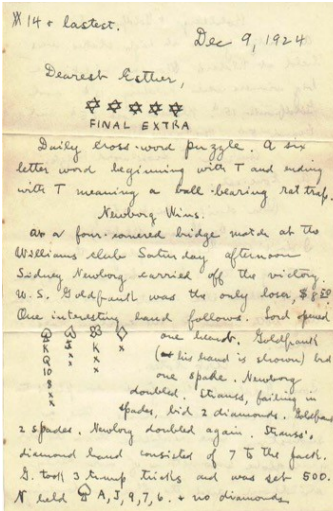 # 14 & lastest.
Dec 9, 1924
Dearest Esther,
✡ ✡ ✡ ✡ ✡
FINAL EXTRA
Daily Cross-word puzzle. A six
letter word beginning with T and ending
with T meaning a ball-bearing rat trap.
Newborg Wins.
At a four-somered bridge match at the
Williams club Saturday afternoon
Sidney Newborg carried off the victory.
W.S. Goldfrank was the only loser,
One interesting hand follows. Lord opened
♠ ♡ ♣ ♢ one heart. Goldfrank
K J K x (his hand is shown) bid
Q x x one spade. Newborg
10 x x doubled. Strauss, failing in
8 spades, bid 2 diamonds. Goldfrank
x
2 spades. Newborg doubled again. Strauss's
diamond hand consisted of 7 to the jack.
G. took 3 trump tricks and was set 500.
N held ♠ A, J, 9, 7, 6. & no diamonds.